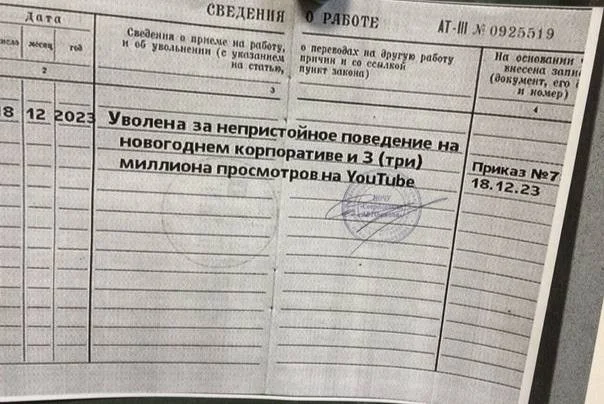 СВЕДЕНИЯ О РАБОТЕ
АТ-III № 0925519
Дата
число месяц год
Сведения о приеме на работу,
и об увольнении (с указанием
на статью,
о переводах на другую работу
причин и со ссылкой
пункт закона)
На основании
внесена запи
(документ, его
и номер)
2
3
4
18 12 2023
Уволена за непристойное поведение на
новогоднем корпоративе и 3 (три)
миллиона просмотров на YouTube
Приказ №7
18.12.23